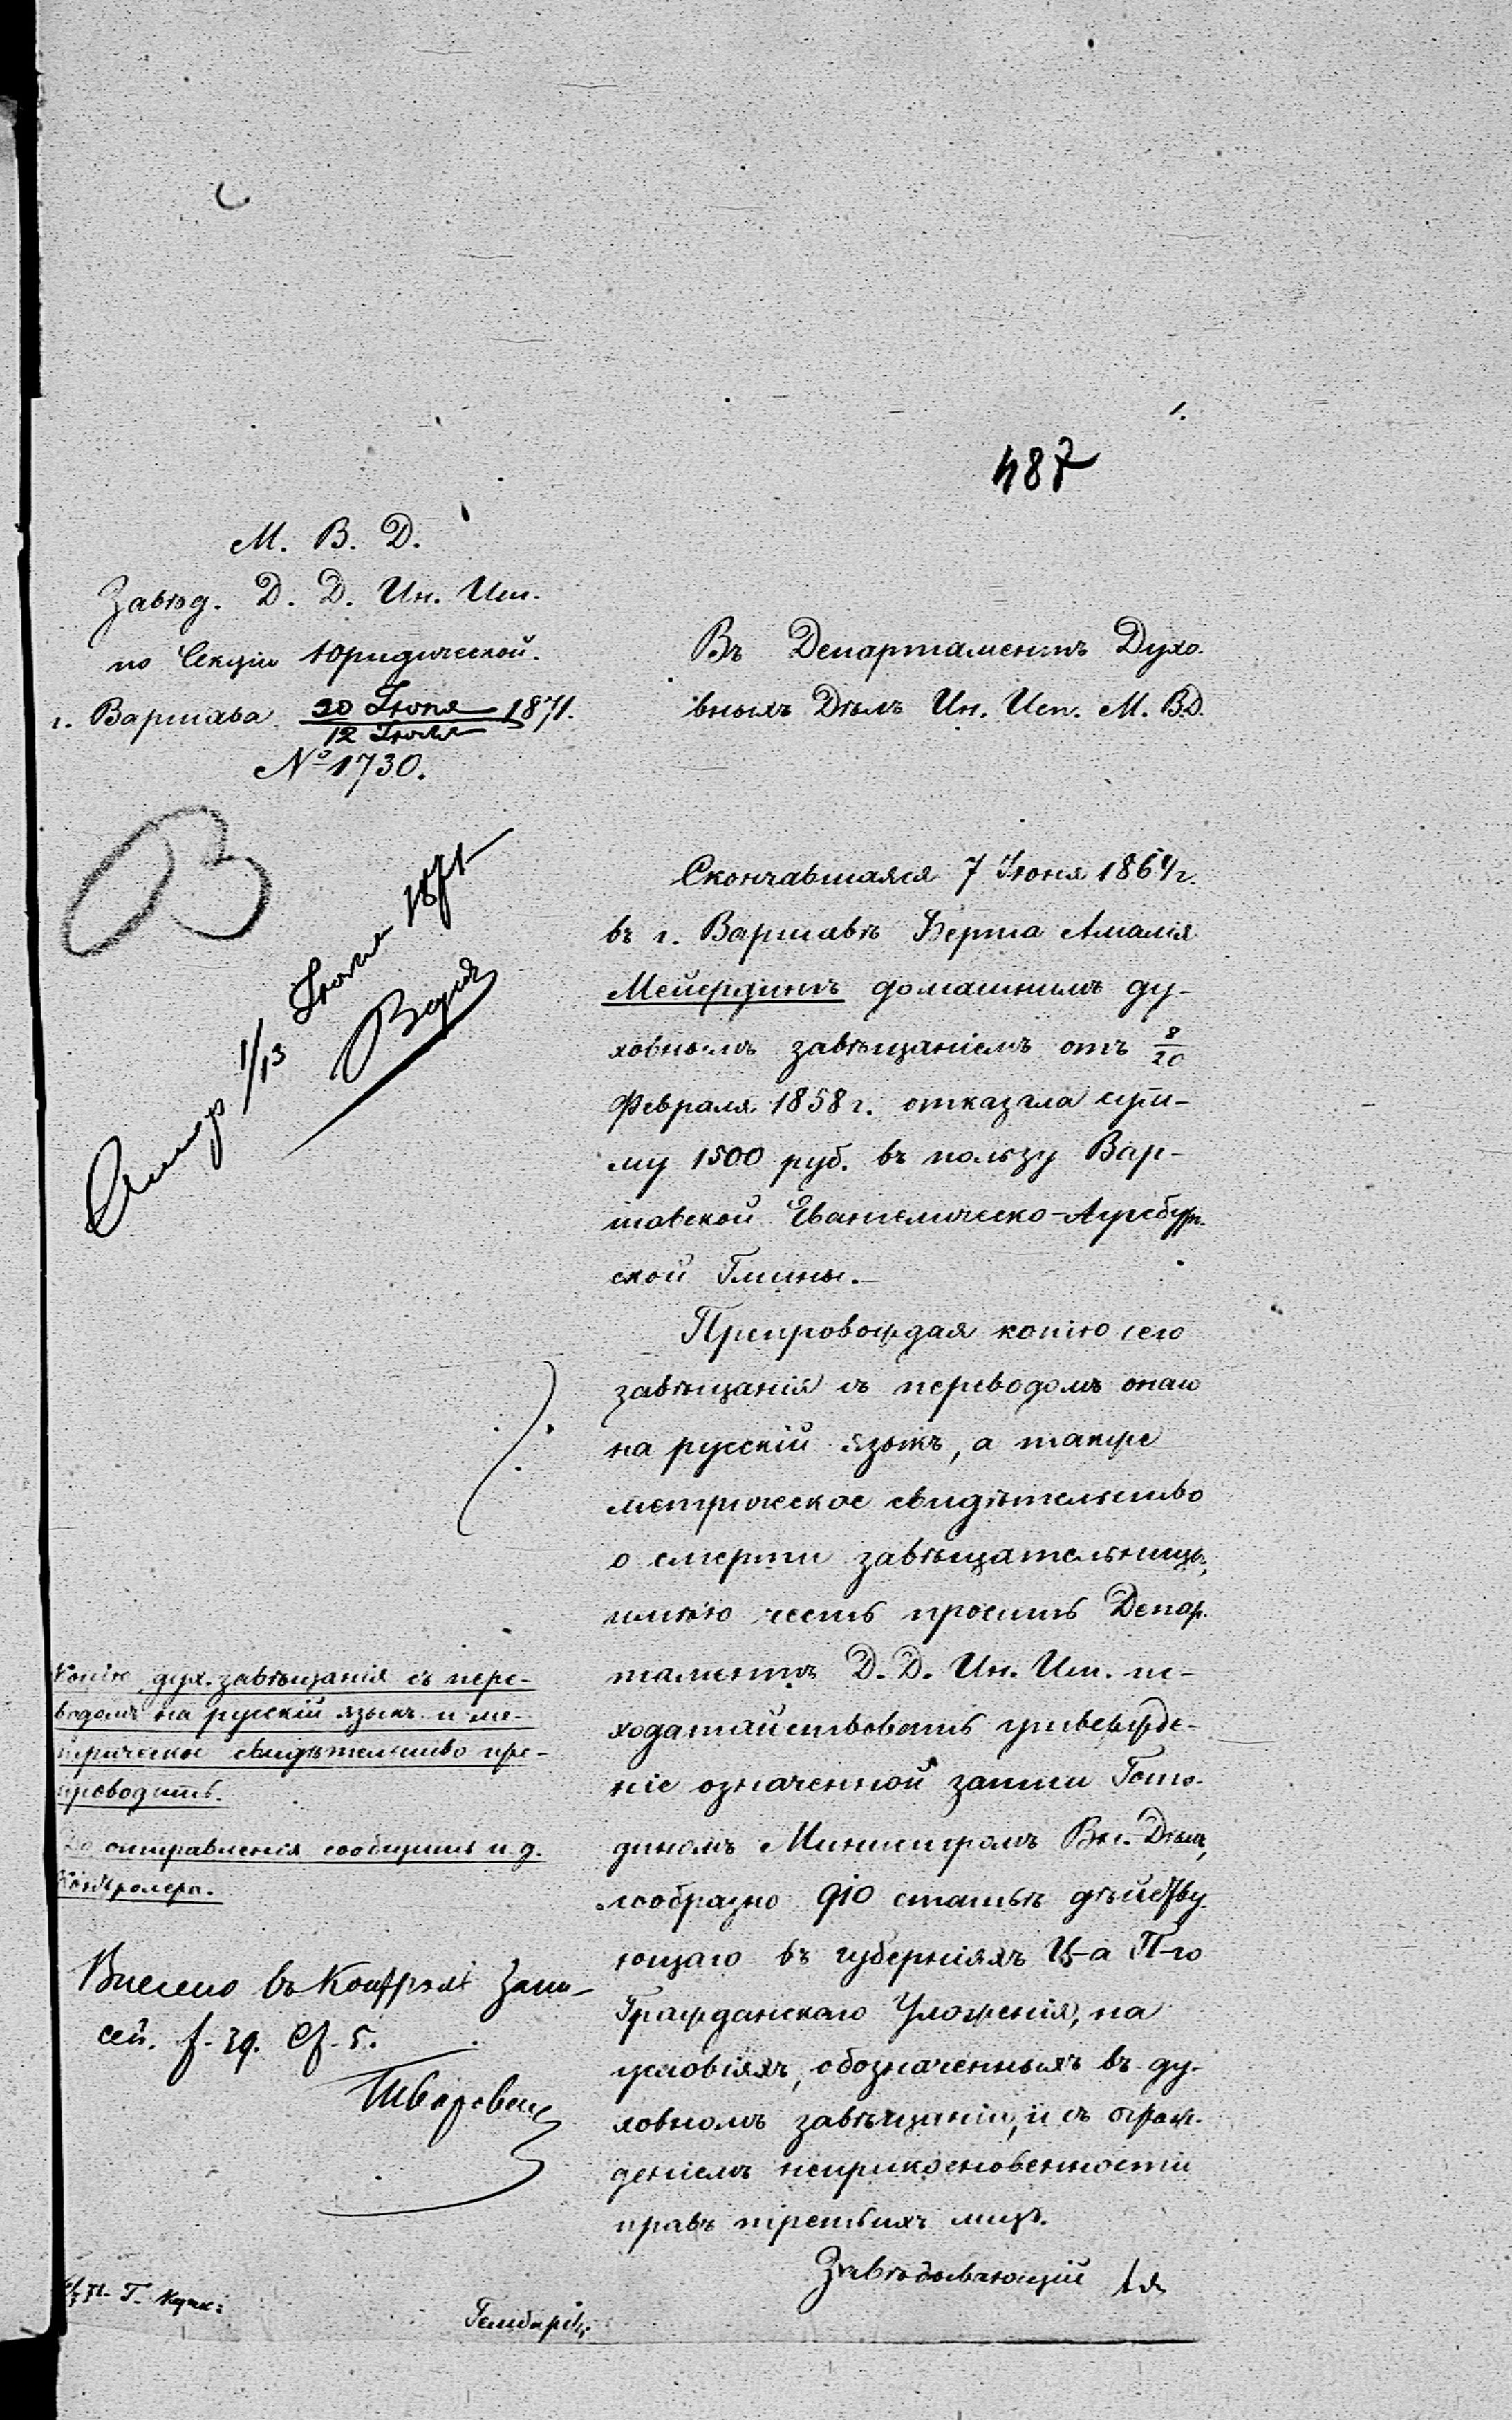 1.
487
М. В. Д.
Завѣд. Д. Д. Ин. Исп.
по Секціи Юридической.
г. Варшава 30 Іюня 1871.
12 Іюля
№ 1730.
Въ Департаментъ Духо-
вныхъ Дѣлъ Ин. Исп. М. В.Д.
1/13 Іюля 1871
Скончавшаяся 7 Іюня 1864 г.
въ г. Варшавѣ Берта Амалія
Мейердингъ домашнимъ ду-
ховнымъ завѣщаніемъ отъ 8/20
Февраля 1858 г. отказала сум-
му 1500 руб. въ пользу Вар-
шавской Евангелическо-Аугсбург-
ской Гмины.
Препровождая копію сего
завѣщанія съ переводомъ онаго
на русскій языкъ, а также
метрическое свидѣтельство
о смерти завѣщательницы,
имѣю честь просить Депар-
таментъ Д. Д. Ин. Исп. ис-
ходатайствовать утвержде-
ніе означенной записи Госпо-
диномъ Министромъ Вн. Дѣлъ,
сообразно 910 статьѣ дѣйству-
ющаго въ губерніяхъ Ц-а П-го
Гражданскаго Уложенія, на
условіяхъ, обозначенныхъ въ ду-
ховномъ завѣщаніи, и съ ограж-
деніемъ неприкосновенности
правъ третьихъ лицъ.
Завѣдывающій
Копію дух. завѣщанія съ пере-
водомъ на русскій языкъ и ме-
трическое свидѣтельство пре-
проводить.
До отправленія сообщить и. д.
Контролера.
Внесено въ Контроль Запи-
сей. f. 39. Cf. 5.